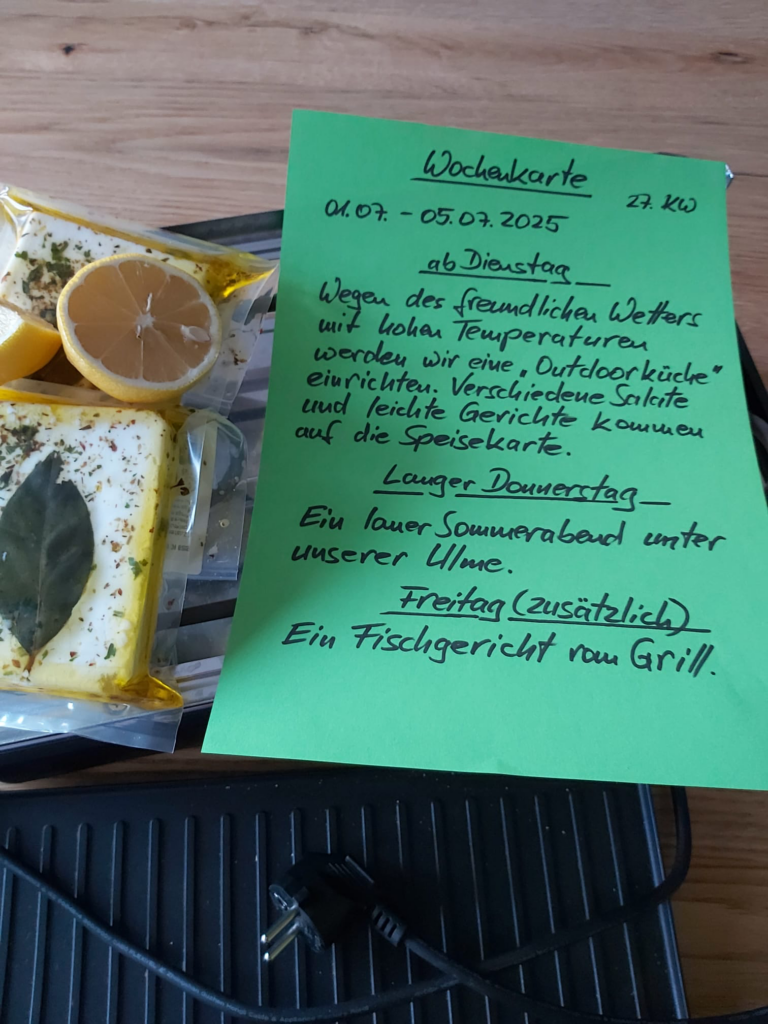 Wochenkarte
27. KW
01.07. - 05.07.2025
ab Dienstag
Wegen des freundlichen Wetters
mit hohen Temperaturen
werden wir eine „Outdoorküche"
einrichten. Verschiedene Salate
und leichte Gerichte kommen
auf die Speisekarte.
Langer Donnerstag
Ein lauer Sommerabend unter
unserer Ulme.
Freitag (zusätzlich)
Ein Fischgericht vom Grill.